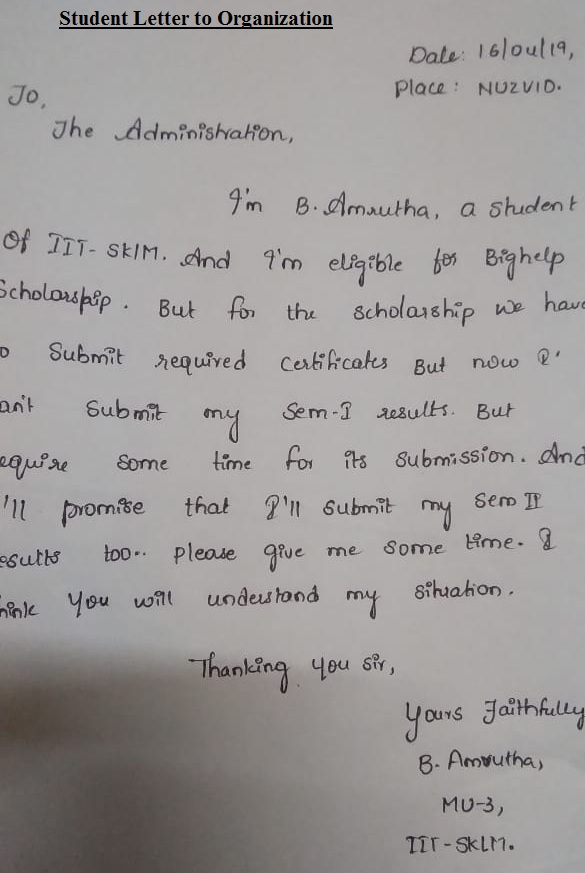 Student Letter to Organization
Date: 16/04/19,
Place: NUZVID.
To,
The Administration,
I'm B. Amrutha, a student
Of IIT-SKLM. And I'm eligible for Bighelp
Scholarship. But for the scholarship we have
o Submit required certificates But now I'
an't Submit my Sem-I results. But
equire some time for its submission. And
'll promise that I'll submit my Sem II
esults too.. please give me some time. I
hink you will understand my situation.
Thanking you sir,
yours Faithfully
B. Amrutha,
MU-3,
IIT-SKLM.